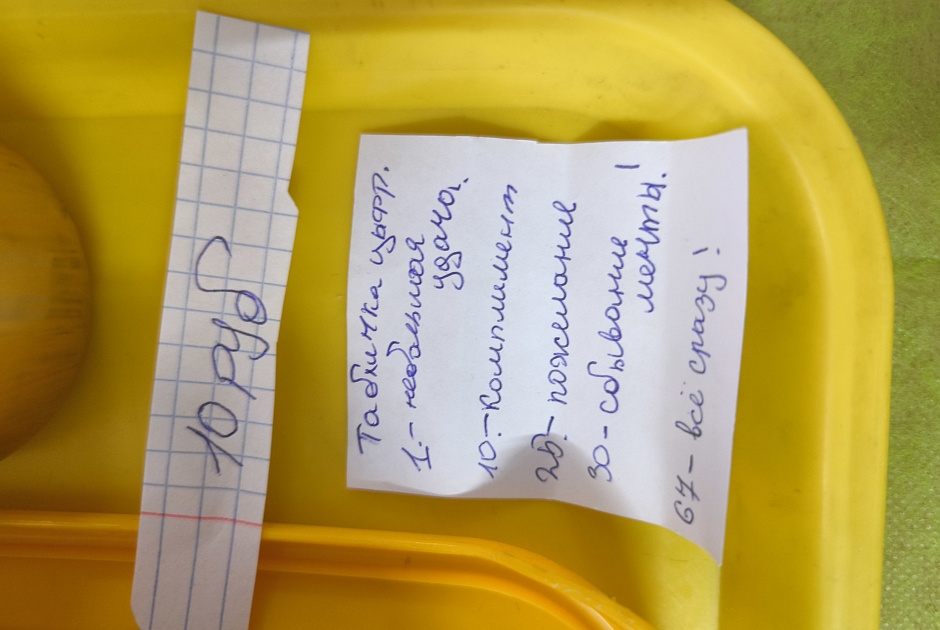 10 руб
Табличка цифр.
1.- небольшая
удача.
10.- комплимент
25.- пожелание
30 - сбывание
мечты!
67 - всё сразу!